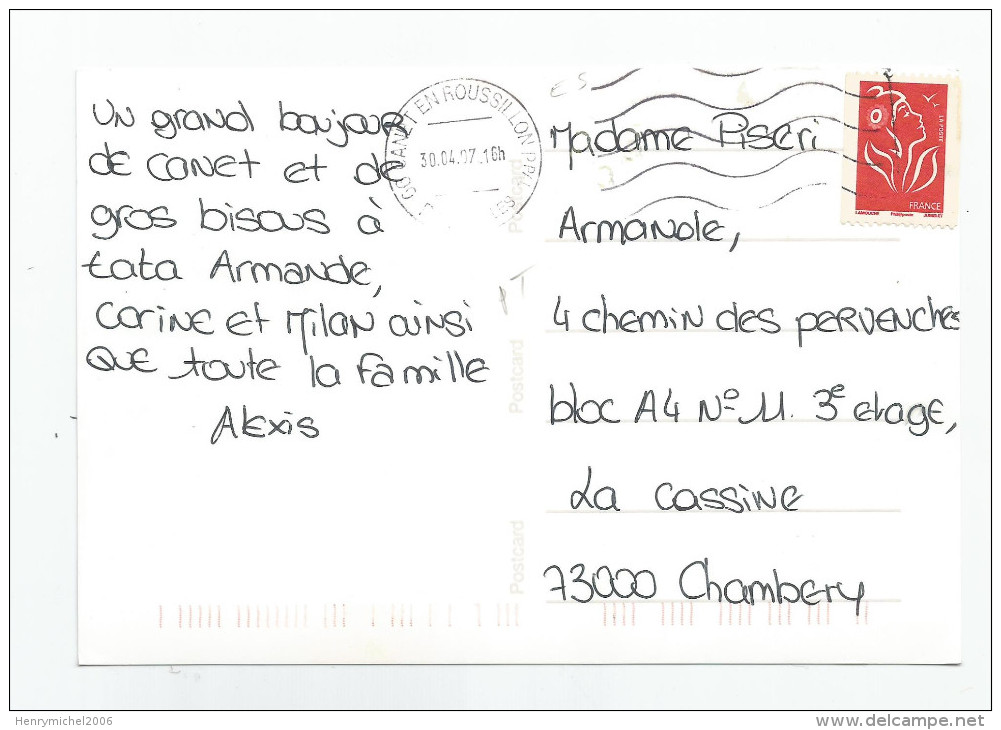 Un grand boujour
de canet et de
gros bisous à
tata Armande,
Corine et Milan ainsi
que toute la famille
Alexis
CANET EN ROUSSILLON PPAL
30.04.07.16h
Madame Piseri
Armande,
4 chemin des pervenches
bloc A4 N° 11. 3e etage,
La cassine
73000 Chambery
LA POSTE
FRANCE
LAMOUCHE
Phil@poste
Postcard
Postcard
Postcard
Henrymichel2006
www.delcampe.net